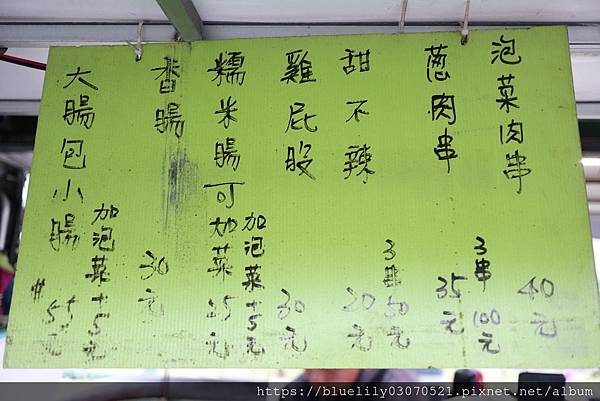 泡菜肉串 40元
3串100元
蔥肉串 35元
3串50元
甜不辣 20元
雞屁股 30元
加泡菜+5元
糯米腸可加菜 25元
香腸 30元
加泡菜+5元
大腸包小腸 #55元
©https://bluelily03070521.pixnet.net/album